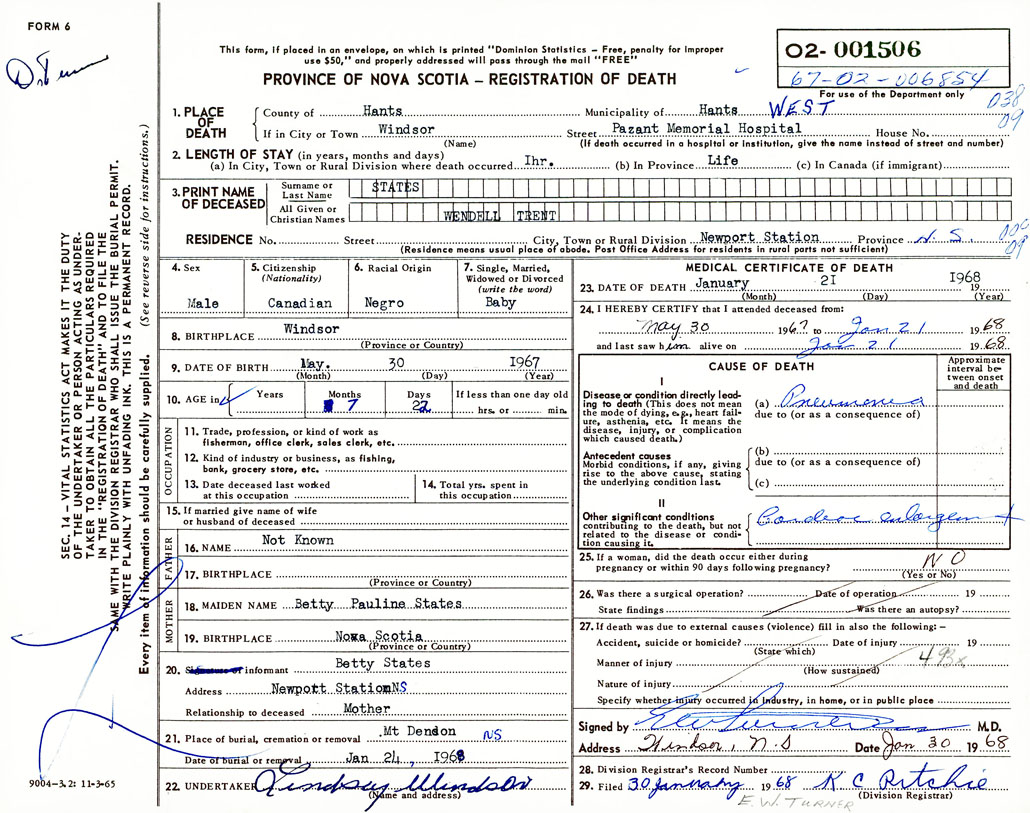 FORM 6
Dr Turner
This form, if placed in an envelope, on which is printed "Dominion Statistics – Free, penalty for improper
use $50," and properly addressed will pass through the mail "FREE"
PROVINCE OF NOVA SCOTIA – REGISTRATION OF DEATH
O2- 001506
67-02-006854
For use of the Department only
038
09
1. PLACE OF DEATH
County of Hants Municipality of Hants WEST
If in City or Town Windsor Street Pazant Memorial Hospital House No.
(Name) (If death occurred in a hospital or institution, give the name instead of street and number)
2. LENGTH OF STAY (in years, months and days)
(a) In City, Town or Rural Division where death occurred Ihr. (b) In Province Life (c) In Canada (if immigrant)
3. PRINT NAME OF DECEASED
Surname or Last Name STATES
All Given or Christian Names WENDELL TRENT
RESIDENCE No. Street City, Town or Rural Division Newport Station Province N. S.
09
(Residence means usual place of abode. Post Office Address for residents in rural parts not sufficient)
4. Sex Male
5. Citizenship (Nationality) Canadian
6. Racial Origin Negro
7. Single, Married, Widowed or Divorced (write the word) Baby
8. BIRTHPLACE Windsor
(Province or Country)
9. DATE OF BIRTH May. 30 1967
(Month) (Day) (Year)
10. AGE in Years Months 7 Days 22 If less than one day old hrs. or min.
OCCUPATION
11. Trade, profession, or kind of work as
fisherman, office clerk, sales clerk, etc.
12. Kind of industry or business, as fishing,
bank, grocery store, etc.
13. Date deceased last worked
at this occupation
14. Total yrs. spent in
this occupation
15. If married give name of wife
or husband of deceased
FATHER
16. NAME Not Known
17. BIRTHPLACE
(Province or Country)
MOTHER
18. MAIDEN NAME Betty Pauline States
19. BIRTHPLACE Nova Scotia
(Province or Country)
20. informant Betty States
Address Newpott Station NS
Relationship to deceased Mother
21. Place of burial, cremation or removal Mt Dendon NS
Date of burial or removal Jan 24, 1968
22. UNDERTAKER Lindsey Windsor
(Name and address)
MEDICAL CERTIFICATE OF DEATH
23. DATE OF DEATH January 2I 19 1968
(Month) (Day) (Year)
24. I HEREBY CERTIFY that I attended deceased from:
May 30 1967 to Jan 21 1968
and last saw him alive on Jan 21 1968
CAUSE OF DEATH
Approximate interval between onset and death
I
Disease or condition directly leading to death (This does not mean
the mode of dying, e.g., heart failure, asthenia, etc. It means the
disease, injury, or complication
which caused death.)
(a) Pneumonia
due to (or as a consequence of)
Antecedent causes
Morbid conditions, if any, giving
rise to the above cause, stating
the underlying condition last.
(b)
due to (or as a consequence of)
(c)
II
Other significant conditions
contributing to the death, but not
related to the disease or condition causing it.
Cardiac enlargem t
25. If a woman, did the death occur either during
pregnancy or within 90 days following pregnancy? NO
(Yes or No)
26. Was there a surgical operation? Date of operation 19
State findings Was there an autopsy?
27. If death was due to external causes (violence) fill in also the following: –
Accident, suicide or homicide? Date of injury 19
(State which)
493x
Manner of injury
(How sustained)
Nature of injury
Specify whether injury occurred in Industry, in home, or in public place
Signed by M.D.
Address Windsor, N.S Date Jan 30 1968
28. Division Registrar's Record Number
29. Filed 30 January 1968 K C Ritchie
(Division Registrar)
E. W. TURNER
SEC. 14 – VITAL STATISTICS ACT MAKES IT THE DUTY
OF THE UNDERTAKER OR PERSON ACTING AS UNDERTAKER TO OBTAIN ALL THE PARTICULARS REQUIRED
IN THE "REGISTRATION OF DEATH" AND TO FILE THE
SAME WITH THE DIVISION REGISTRAR WHO SHALL ISSUE THE BURIAL PERMIT.
WRITE PLAINLY WITH UNFADING INK. THIS IS A PERMANENT RECORD.
Every item of information should be carefully supplied. (See reverse side for instructions.)
9004-3.2: 11-3-65